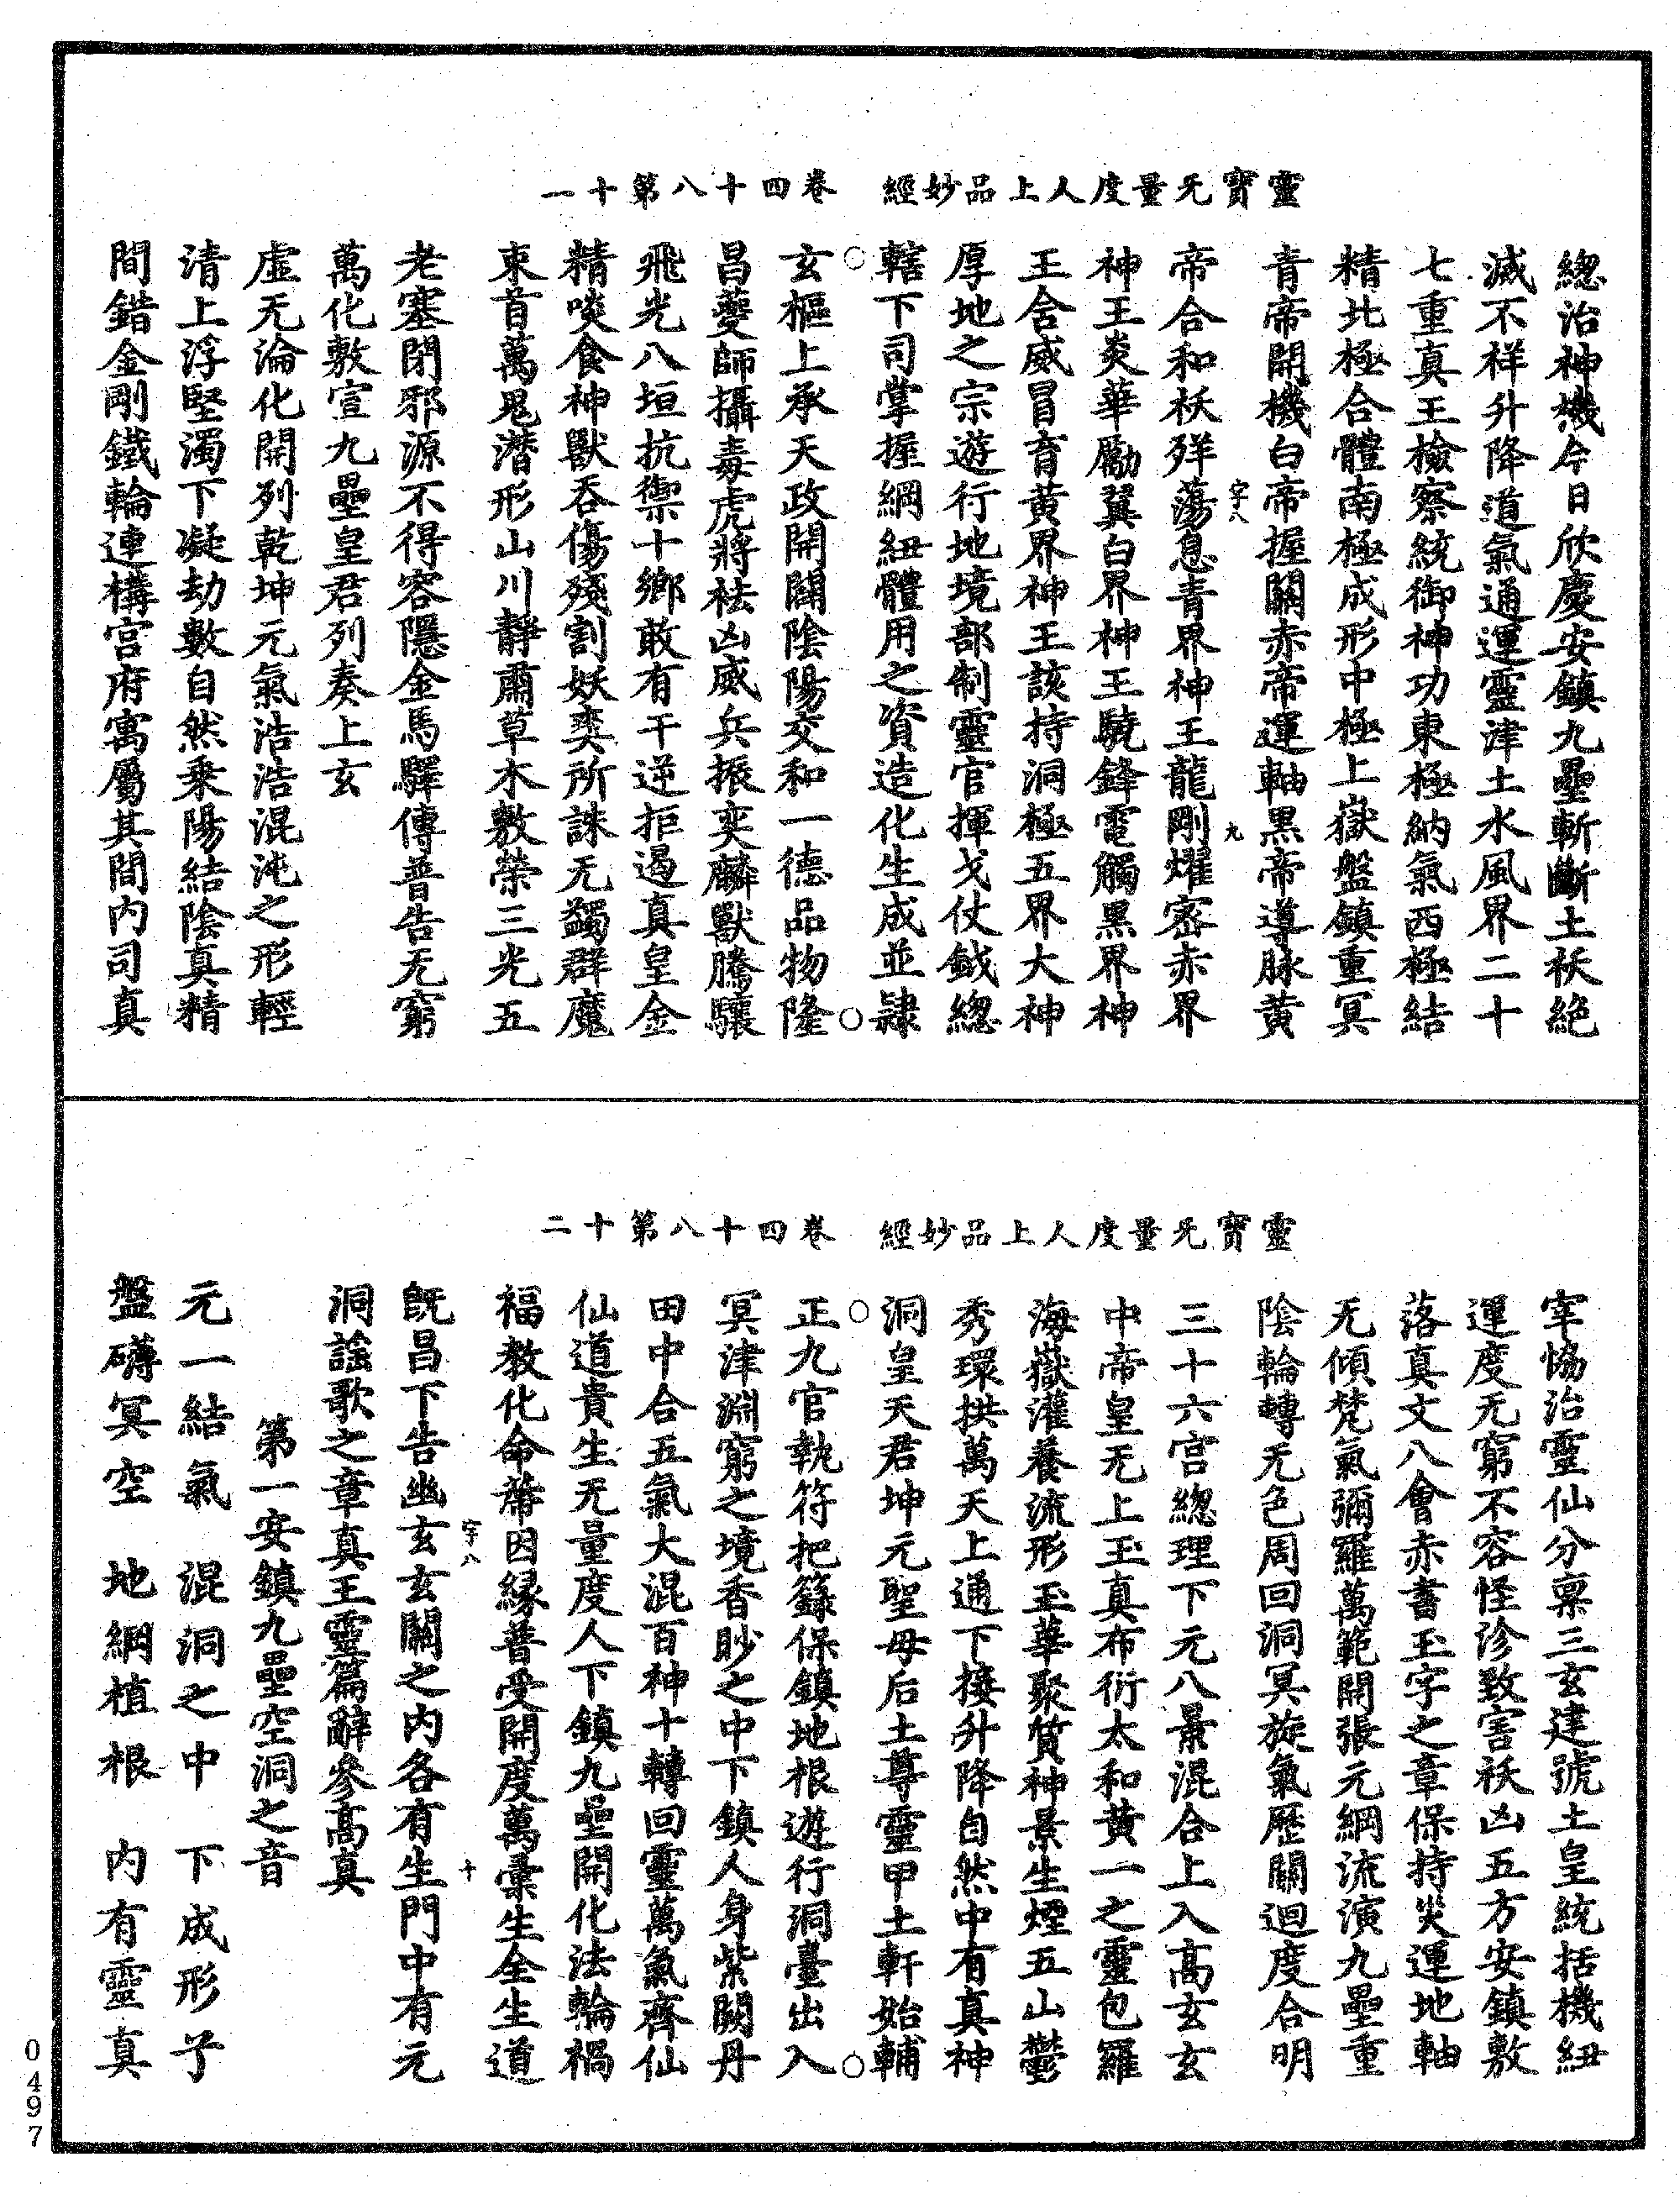 靈寶无量度人上品妙經　卷四十八第十一
緫治神機今日欣慶安鎮九壘斬斷土祅絕
滅不祥升降道氣通運靈津土水風界二十
七重真王檢察統御神功東極納氣西極結
精北極合體南極成形中極上嶽盤鎮重冥
青帝開機白帝握關赤帝運軸黒帝導脉黃
字八　九
帝合和祅殍蕩息青界神王龍剛燿密赤界
神王炎華勵翼白界神王驍鋒電觸黒界神
王含威冒育黃界神王該持洞極五界大神
厚地之宗遊行地境部制靈官揮戈仗鉞緫
轄下司掌握綱紐體用之資造化生成並隷
玄樞上承天政開闢陰陽交和一德品物隆
昌虁師攝毒虎將袪凶威兵振奕麟獸騰驤
飛光八垣抗禦十鄉敢有干逆拒遏真皇金
精啖食神獸吞傷殘割妖奕所誅无蠲群魔
束首萬鬼潛形山川靜肅草木敷榮三光五
老塞閉邪源不得容隱金馬驛傳普告无窮
萬化敷宣九壘皇君列奏上玄
虛无淪化開列乾坤元氣浩浩混沌之形輕
清上浮堅濁下凝劫數自然乗陽結陰真精
間錯金剛鐵輪連構宫府寓屬其間内司真
靈寶无量度人上品妙經　卷四十八第十二
宰恊治靈仙分禀三玄建號土皇統括機紐
運度无窮不容怪沴致害祅凶五方安鎮敷
落真文八㑹赤書玉字之章保持災運地軸
无傾梵氣彌羅萬範開張元綱流演九壘重
陰輪轉无色周回洞冥旋氣歷關迴度合明
三十六宫緫理下元八景混合上入高玄玄
中帝皇无上玉真布衍太和黃一之靈包羅
海嶽灌養流形玉華聚質神景生煙五山鬱
秀環拱萬天上通下接升降自然中有真神
洞皇天君坤元聖母后土尊靈甲土軒始輔
正九官執符把籙保鎮地根遊行洞臺出入
冥津淵窮之境香眇之中下鎮人身紫闕丹
田中合五氣大混百神十轉回靈萬氣齊仙
仙道貴生无量度人下鎮九壘開化法輪禍
福教化命帶因縁普受開度萬彙生全生道
旣昌下告幽玄玄關之内各有生門中有元
字八　十
洞謡歌之章真王靈篇辭參高真
第一安鎮九壘空洞之音
元一結氣　混洞之中　下成形子
盤礴冥空　地綱植根　内有靈真
0497